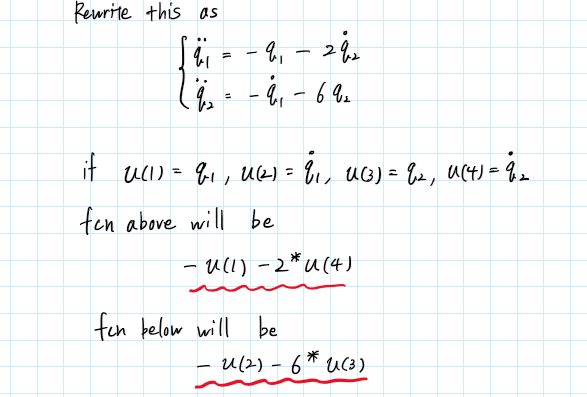 Rewrite this as
q̈₁ = - q₁ - 2q̇₂
q̈₂ = - q̇₁ - 6q₂
if u(1) = q₁, u(2) = q̇₁, u(3) = q₂, u(4) = q̇₂
fcn above will be
- u(1) - 2*u(4)
fcn below will be
- u(2) - 6*u(3)